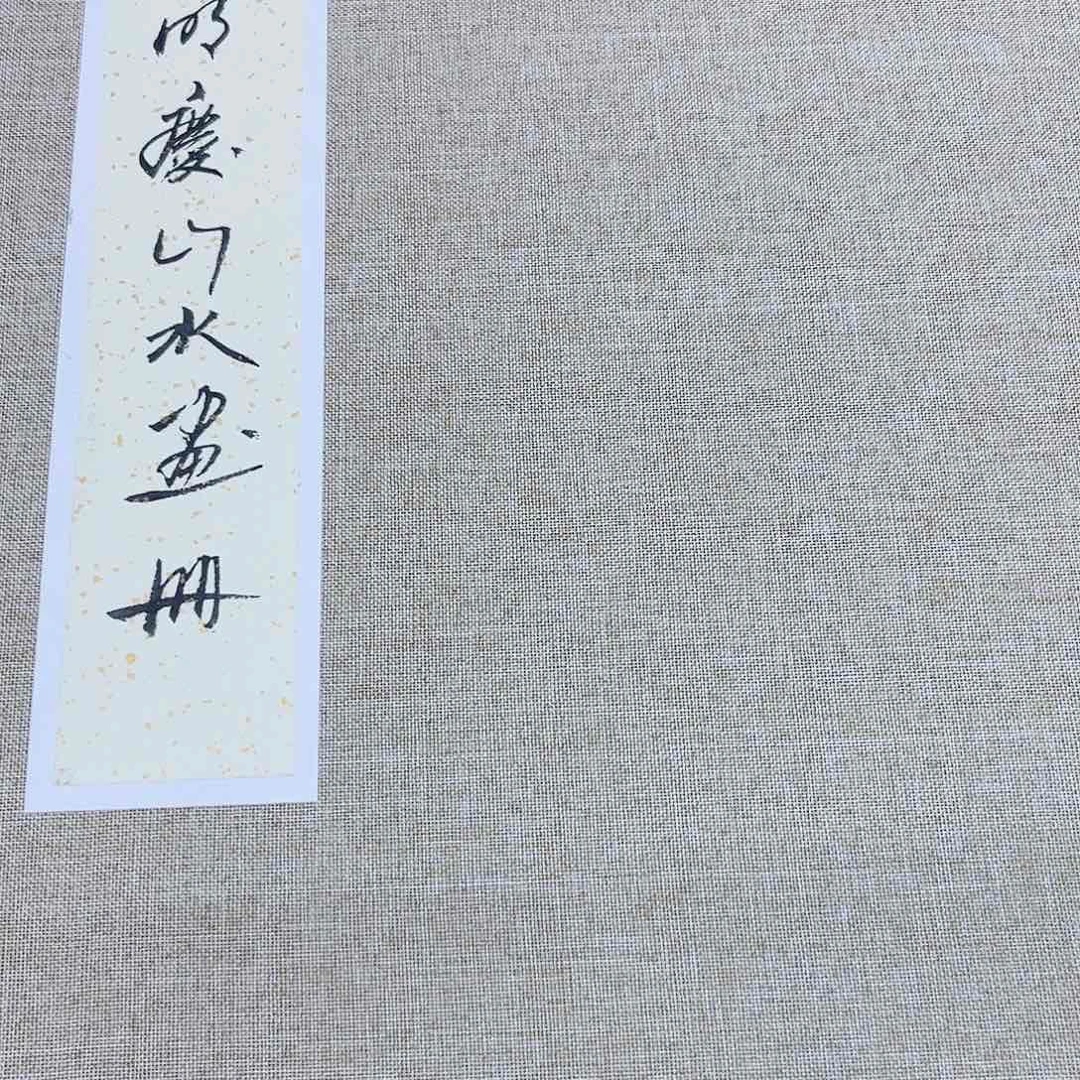 明慶山水画冊